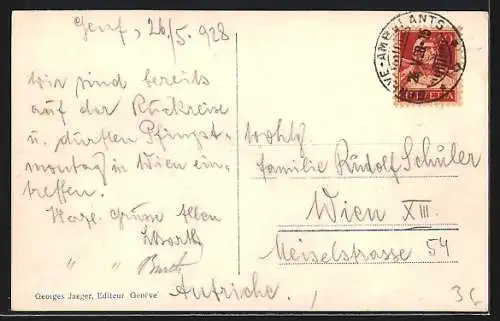 Genf, 26/5. 928
Wir sind bereits
auf der Rückreise
u. dürften Pfingst-
montag in Wien ein-
treffen.
Herzl. Grüsse Allen
" "
Wohlg
Familie Rudolf Schuler
Wien XIII.
Meiselstrasse 54
Autriche.
VE-AMBULANTS
HELVETIA
Georges Jaeger, Editeur Genève